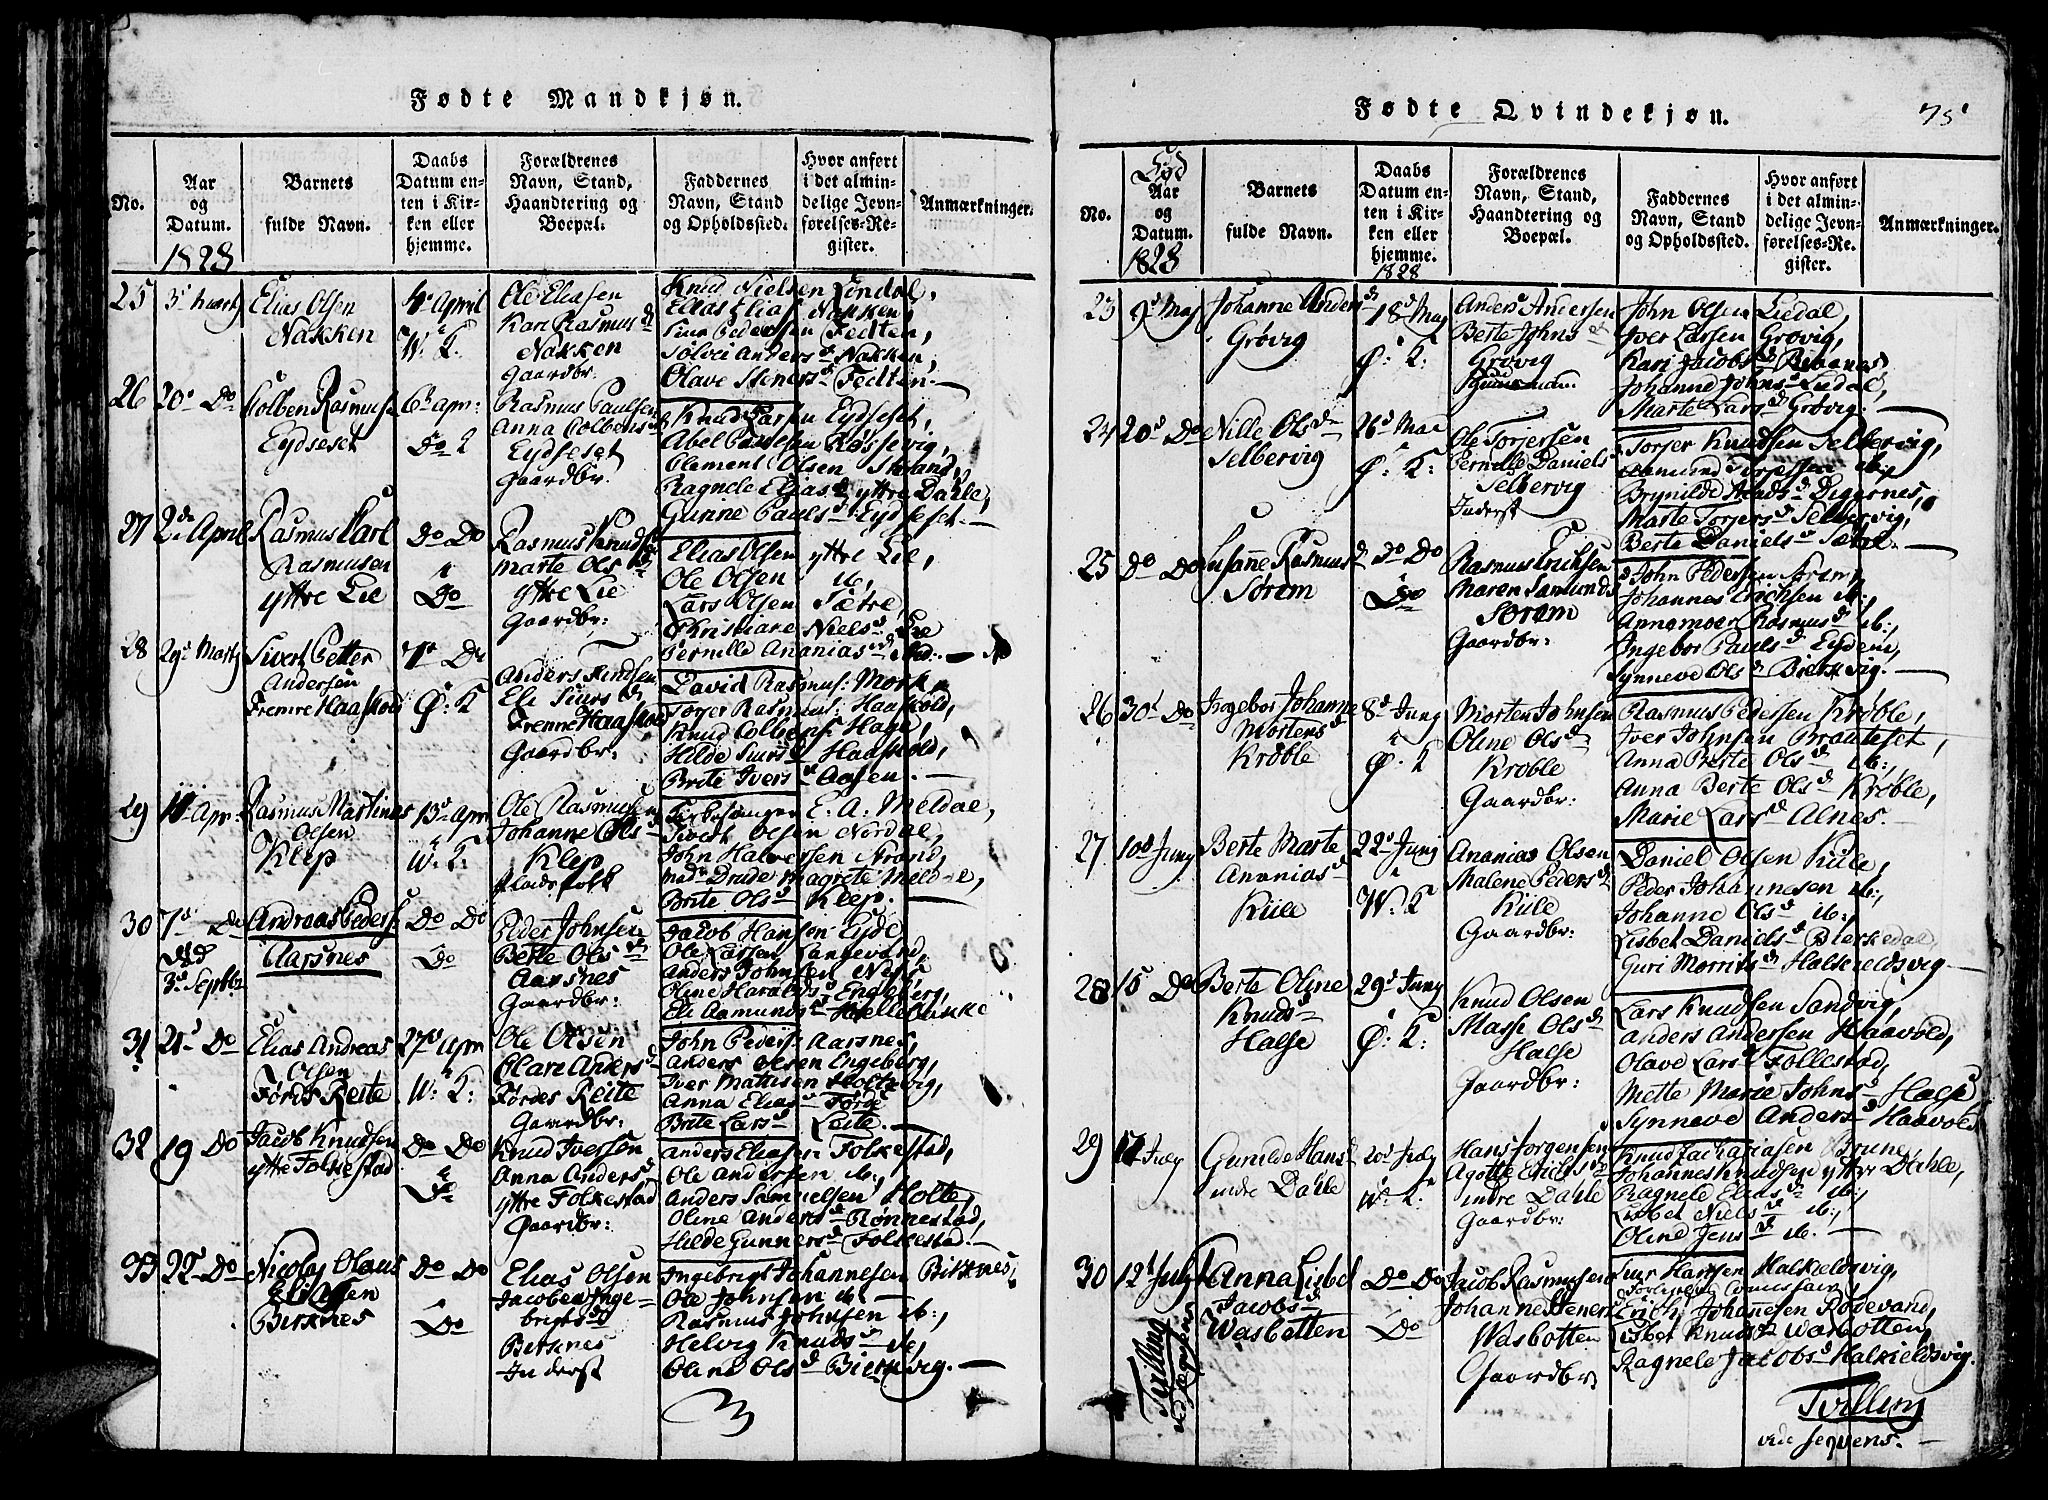 Fødte Mandkjøn.
No.
Aar
og
Datum.
1828
Barnets
fulde Navn.
Daabs
Datum en-
ten i Kir-
ken eller
hjemme.
Forældrenes
Navn, Stand,
Haandtering og
Boepæl.
Faddernes
Navn, Stand
og Opholdssted.
Hvor anført
i det almin-
delige Jevn-
førelses-Re-
gister.
Anmærkninger.
25
Elias Olsen
Nakken
4de April
i
W. K.
Ole Eliasen
Kari Rasmusd
Nakken
Gaardbr.
Knud Nielsen Lindal,
Elias Elias Nakken,
Pedersen Fedten,
Sølvei Andersd Nakken,
Olave Steners d Fedten.
26 20d Do
Colben Rasmuse
Eydseset
6te Apr:
Do
Rasmus Paulsen
Anna Colbensd
Eydseset
Gaardbr.
Knud Larsen Eydseset,
Abel Paulsen Rossevig,
Clement Olsen Strand,
Ragnele Elias d yttre Dahle,
Gunne Pauls d Eydseset.
27 2de April
Rasmus Karl
Rasmusen
yttre Lie
Do Do
i
Do
Rasmus Knuds
Marte Ols d
yttre Lie
Gaardbr:
Elias Olsen yttre Lie,
Ole Olsen ib,
Lars Olsen Sætre,
Christiane Niels d Lie
Pernille Ananias d ibd.
28 29d Martj
Sivert Petter
Andersen
Fremre Haaskold
7de Do
i
Ø: K
Anders Knudsen
Eli Siurs d
Fremre Haaskold
Gaardbr:
David Rasmus: Mork
Torger Rasmus: Haaskold,
Knud Colbens: Hage,
Hilde Siurs d Haaskold,
Brite Ivers d Aasen.
29
Rasmus Martinus
Olsen
Klep
13d Apr
i
W. K.
Ole Rasmusen
Johanne Olsd
Klep
Pladsfolk
Kirkesanger E. A. Meldal,
Sivert Olsen Nordal,
John Halversen Strand,
Mad: Drude Magrete Meldal,
Brite Ols d Klep.
30 7d Do
3d Septbr
Andreas Peders:
Aarsnes
Do Do
i
Do
Peder Johnsen
Berte Ols d
Aarsnes
Gaardbr:
Jacob Hansen Eyde
Ole Larsen Langevand,
Anders Johnsen Ness,
Oline Haralds d Engeberg,
Eli Aamunds d Helleb
31 21d Do
Elias Andreas
Olsen
Førde Reite
27d Apr
i
W: K:
Ole Olsen
Clare Anders d
Førdes Reite
Gaardbr:
John Peders: Aarsnes,
Anders Olsen Engeberg,
Iver Mathisen Holtevig,
Anna Elias d Førde
Brite Lars d Leite.
32 19 Do
Jacob Knudsen
yttre Folkestad
Do Do
i
Do
Knud Iversen
Anna Anders d
yttre Folkestad
Gaardbr:
Anders Eliasen Folkestad,
Ole Andersen ib.,
Anders Samuelsen Holte,
Oline Anders d Rønnestad,
Hilde Gunners d Folkestad.
33 22de Do
Nicolay Olaus
Eliasen
Birknes
Do Do
i
Do
Elias Olsen
Jacobea Inge-
brigts d
Birknes
Inderst
Ingebrigt Johannesen Birknes,
Ole Johnsen ib.
Rasmus Johnsen ib:,
Helvig Knuds d ib,
Oline Ols d Bierkvig.
Fødte Qvindekjøn.
75
No.
Aar
og
Datum.
1828
Barnets
fulde Navn.
Daabs
Datum en-
ten i Kir-
ken eller
hjemme.
1828
Forældrenes
Navn, Stand,
Haandtering og
Boepæl.
Faddernes
Navn, Stand
og Opholdssted.
Hvor anført
i det almin-
delige Jevn-
førelses-Re-
gister.
Anmærkninger.
23 9d Maj
Johanne Anders d
Grøvig
18d Maj
i
Ø: K:
Anders Andersen
Berte Johns d
Grøvig
John Olsen Liedal,
Iver Larsen Grøvig,
Kari Jacobs d
Johanne Johns d Liedal,
Marte Lars d Grøvig.
24 20d Do
Nille Ols d
Selbervig
26d Mai
i
Ø: K:
Ole Torjersen
Pernille Daniels d
Selbervig
Inderst
Torjer Knudsen Selbervig,
Brynilde d Diggernes,
Marte Torjers d Selbervig,
Berte Daniels d Sætre.
25 Do Do
Susanne Rasmus d
Sørem
Do Do
i
Do
Rasmus Erichsen
Maren Samunds d
Sørem
Gaardbr:
John Pedersen Sørem,
Johannes Erichsen ib:,
Annemoer Rasmus d ib:,
Ingebor Pauls d Eydem,
Synneve Ols d Bierkvig.
26 30d Do
Ingebor Johanne
Mortens d
Krøble
8d Juny
i
Ø. K
Morten Johnsen
Oline Ols d
Krøble
Gaardbr:
Rasmus Pedersen Krøble,
Iver Johnsen Brauteset,
Anna Berte Ols d ib:,
Anna Berte Ols d Krøble,
Marie Lars d Alnes.
27 10d Juny
Berte Marte
Ananias d
Kile
22d Juny
i
W. K
Ananias Olsen
Malene Peders d
Kile
Gaardbr:
Daniel Olsen Kile,
Peder Johannesen ib:,
Johanne Ols d ib:,
Lisbet Daniels d Bierkedal,
Guri Morrits d Halkieldsvig
28 15 Do
Berte Oline
Knuds d
Halse
29d Juny
i
Ø: K:
Knud Olsen
Massi Ols d
Halse
Gaardbr:
Lars Knudsen Sandvig,
Anders Andersen Haavold,
Olave Lars d Follestad,
Mette Marie Johns d Halse
Synneve Anders d Haavold
29 July
Gunilde Hans d
indre Dahle
20d July
i
W: K:
Hans Jorgensen
Agotte Erichs d
indre Dahle
Gaardbr:
Knud Zachariasen Brune
Johannes Knudsen yttre Dahle,
Ragnele Elias d ib:,
Lisbet Niels d ib:,
Oline Jens d ib.
30 12t July
Anna Lisbet
Jacobs d
Wasbotten
Tvilling
Do Do
i
Do
Jacob Rasmusen
Johanne Steners d
Wasbotten
Gaardbr
Siur Hansen Halkieldsvig,
Forligelses Commissair,
Erich Johannesen Rødevand,
Lisbet Knuds d Wasbotten,
Ragnele Jacobs d Halkieldsvig.
Tvilling
vide seqvens.